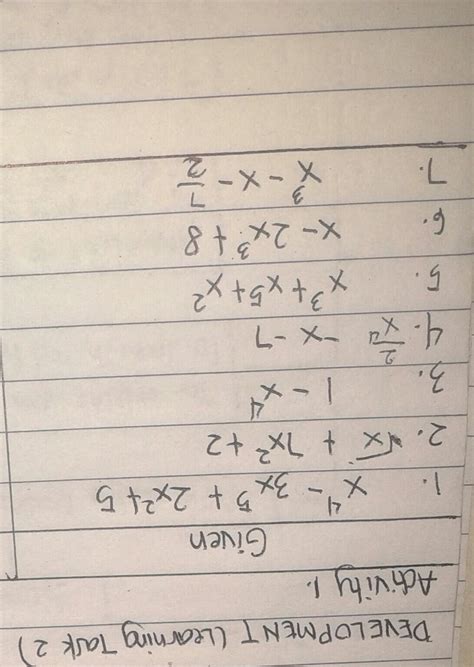 DEVELOPMENT (Learning Task 2)
Activity 1.
Given
1. x⁴ - 3x³ + 2x² + 5
2. √x + 7x² + 2
3. 1 - x⁴
4. 2/x⁴ - x - 7
5. x³ + x5 + x²
6. x - 2x³ + 8
7. x³ - x - 7/2